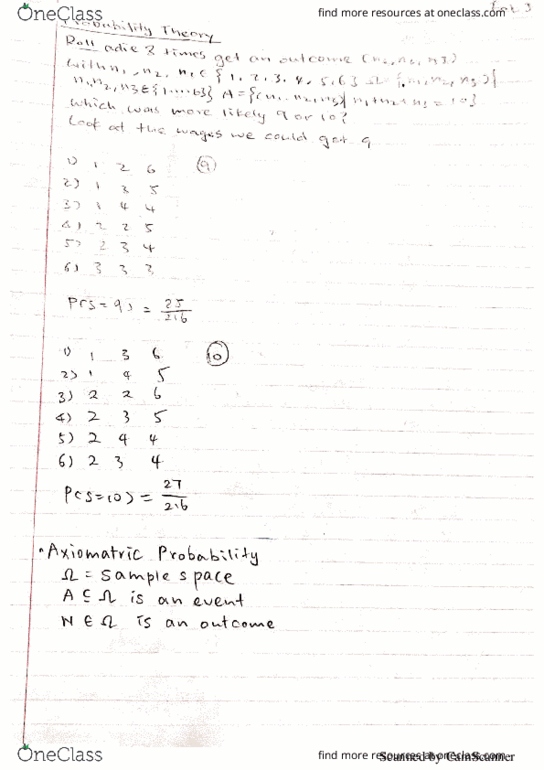 OneClass
find more resources at oneclass.com
Oct 3
Probability Theory
Roll a die 3 times get an outcome (n1, n2, n3)
with n1, n2, n3 ∈ {1, 2, 3, 4, 5, 6} Ω = {(n1, n2, n3)|
n1, n2, n3 ∈ {1....6}} A = {(n1, n2, n3)| n1+n2+n3 = 10}
which was more likely 9 or 10?
Look at the wages we could get 9
1) 1 2 6 (9)
2) 1 3 5
3) 1 4 4
4) 2 2 5
5) 2 3 4
6) 3 3 3
P(S=9) = 25/216
1) 1 3 6 (10)
2) 1 4 5
3) 2 2 6
4) 2 3 5
5) 2 4 4
6) 2 3 4
P(S=10) = 27/216
• Axiomatric Probability
Ω = sample space
A ⊆ Ω is an event
N ∈ Ω is an outcome
OneClass
find more resources at oneclass.com
Scanned by CamScanner